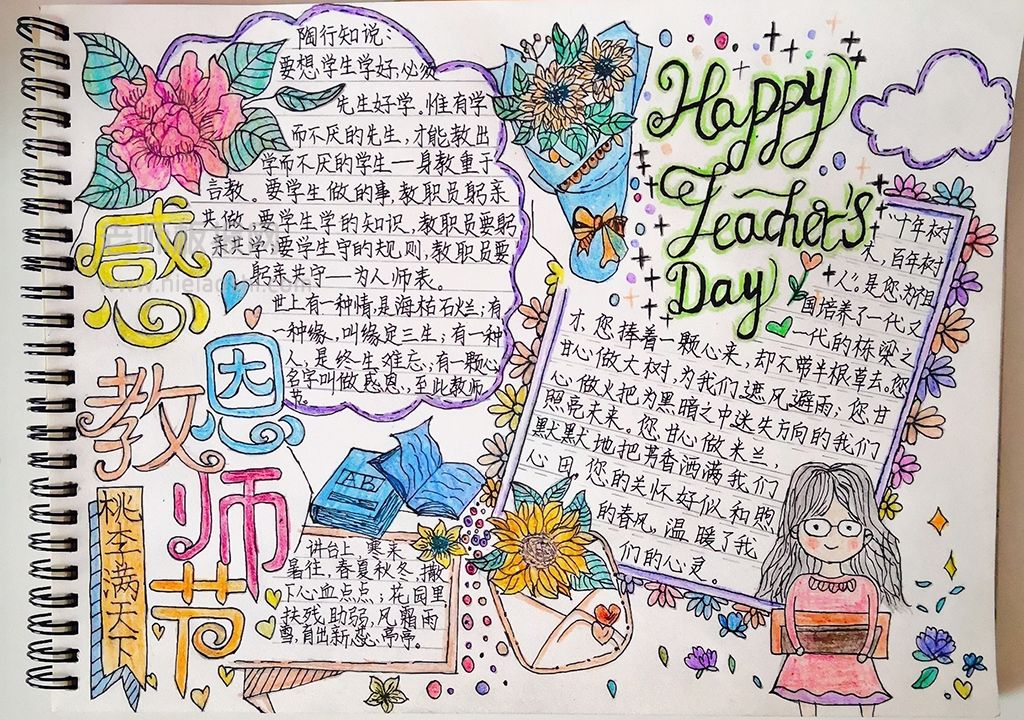 陶行知说:
要想学生学好,必须
先生好学。惟有学
而不厌的先生,才能教出
学而不厌的学生一身教重于
言教。要学生做的事,教职员躬亲
共做,要学生学的知识,教职员要躬
亲共学;要学生守的规则,教职员要
躬亲共守—为人师表。
世上有一种情,是海枯石烂;有
一种缘,叫缘定三生;有一种
人,是终生难忘;有一颗心
名字叫做感恩,至此教师
节
Happy
Teacher's
Day
感
恩
教
师
节
桃李满天下
AB
讲台上,寒来
暑往,春夏秋冬,撒
下心血点点;花园里
扶残助弱,风霜雨
雪,育出新蕊亭亭。
"十年树
木,百年树
人"。是您为祖
国培养了一代又
一代的栋梁之
才,您捧着一颗心来,却不带半根草去。您
甘心做大树,为我们遮风避雨;您甘
心做火把为黑暗之中迷失方向的我们
照亮未来。您甘心做米兰,
默默地把芳香洒满我们
心田,您的关怀好似和煦
的春风,温暖了我
们的心灵。